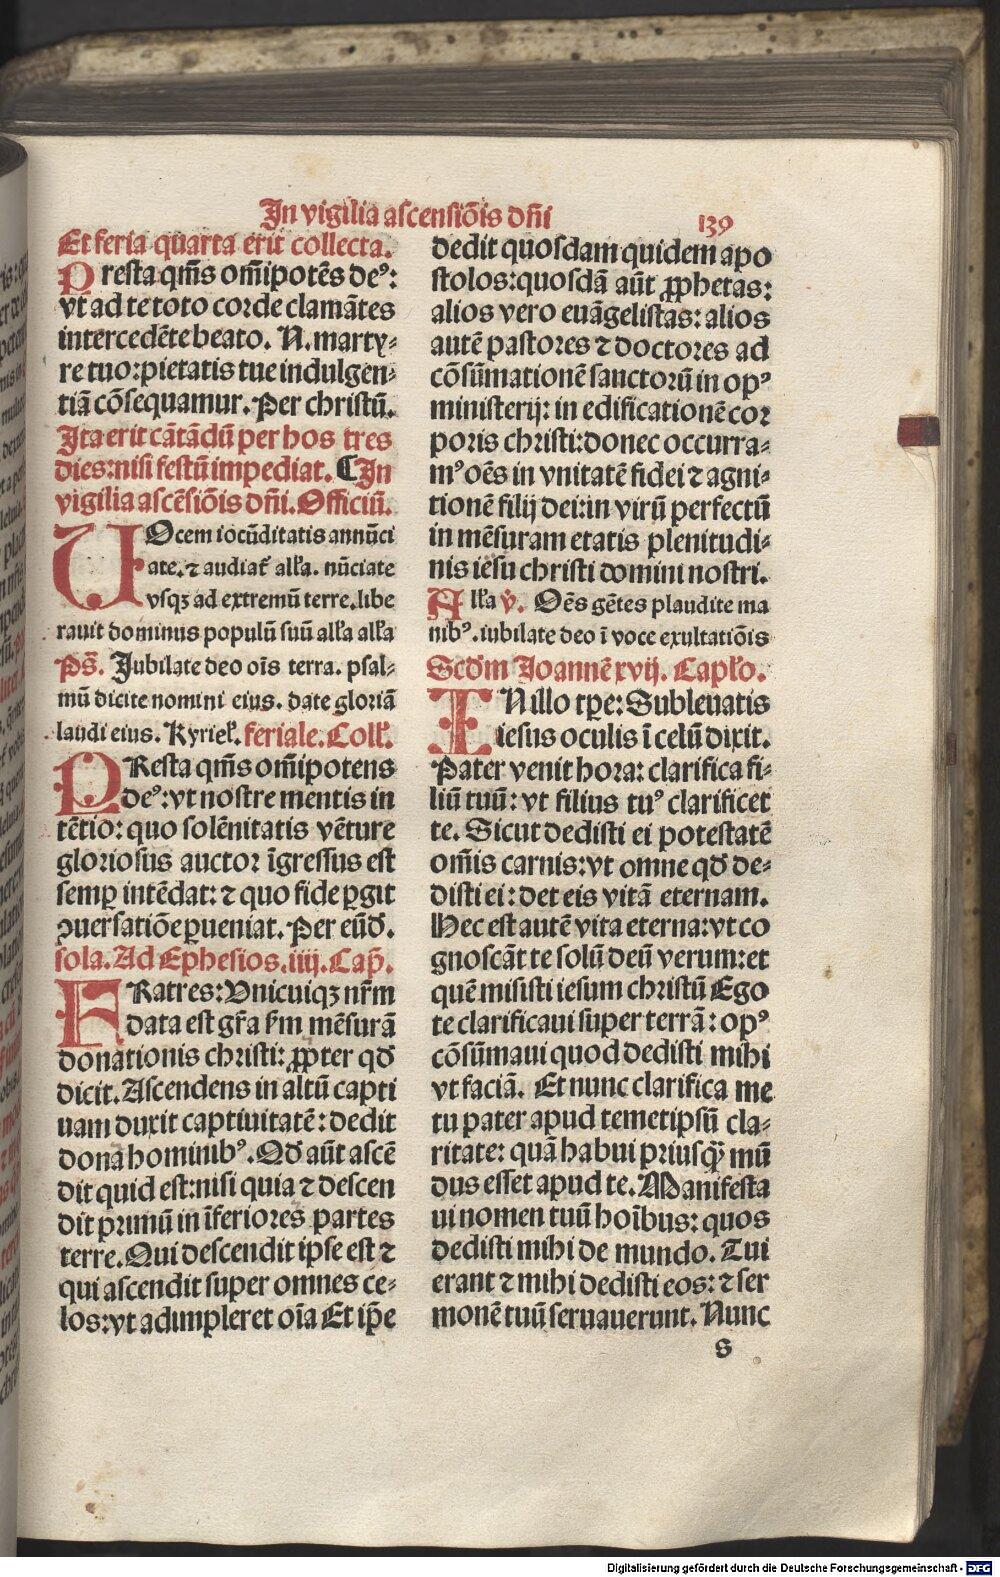 In vigilia ascensiōis dn̄i
139
Et feria quarta erit collecta.
Presta qm̄s om̄ipotēs deꝰ:
vt ad te toto corde clamātes
intercedēte beato. N. marty⸗
re tuo: pietatis tue indulgen⸗
tiā cōsequamur. Per christū.
Ita erit cātādū per hos tres
dies: nisi festū impediat. ¶ In
vigilia ascēsiōis dn̄i. Officiū.
VOcem iocūditatis annūci
ate. ⁊ audiat̄ all'a. nūciate
vsqꝫ ad extremū terre. libe
rauit dominus populū suū all'a all'a
Ps̄. Jubilate deo ois̄ terra. psal⸗
mū dicite nomini eius. date gloriā
laudi eius. Kyriel'. feriale. Coll'.
PResta qm̄s om̄ipotens
deꝰ: vt nostre mentis in
tētio: quo solēnitatis vēture
gloriosus auctor īgressus est
semꝑ intēdat: ⁊ quo fide ꝑgit
ꝯuersatiōe ꝑueniat. Per eūd̄.
sola. Ad Ephesios. iiij. Cap̄.
FRatres: Vnicuiqꝫ nr̄m
data est gr̄a s̄m mēsurā
donationis christi: ꝓpter qd̄
dicit. Ascendens in altū capti
uam duxit captiuitatē: dedit
dona hominibꝰ. Qd̄ aūt ascē
dit quid est: nisi quia ⁊ descen
dit primū in īferiores partes
terre. Qui descendit ipse est ⁊
qui ascendit super omnes ce⸗
los: vt adimpleret oīa Et ip̄e
dedit quosdam quidem apo
stolos: quosdā aūt ꝓphetas:
alios vero euāgelistas: alios
autē pastores ⁊ doctores ad
cōsūmationē sanctorū in opꝰ
ministerij: in edificationē cor
poris christi: donec occurra⸗
mꝰ oēs in vnitatē fidei ⁊ agni⸗
tionē filij dei: in virū perfectū
in mēsuram etatis plenitudi⸗
nis iesu christi domini nostri.
All'a v̄. Oēs gētes plaudite ma
nibꝰ. iubilate deo ī voce exultatiōis
Scd̄m Joannē xvij. Caplo.
IN illo tp̄e: Subleuatis
iesus oculis ī celū dixit.
Pater venit hora: clarifica fi⸗
liū tuū: vt filius tuꝰ clarificet
te. Sicut dedisti ei potestatē
om̄is carnis: vt omne qd̄ de⸗
disti ei: det eis vitā eternam.
Hec est autē vita eterna: vt co
gnoscāt te solū deū verum: et
quē misisti iesum christū Ego
te clarificaui super terrā: opꝰ
cōsūmaui quod dedisti mihi
vt faciā. Et nunc clarifica me
tu pater apud temetipsū cla⸗
ritate: quā habui priusqꝫ̄ mū
dus esset apud te. Manifesta
ui nomen tuū hoībus: quos
dedisti mihi de mundo. Tui
erant ⁊ mihi dedisti eos: ⁊ ser
monē tuū seruauerunt. Nunc
s
Digitalisierung gefördert durch die Deutsche Forschungsgemeinschaft - DFG